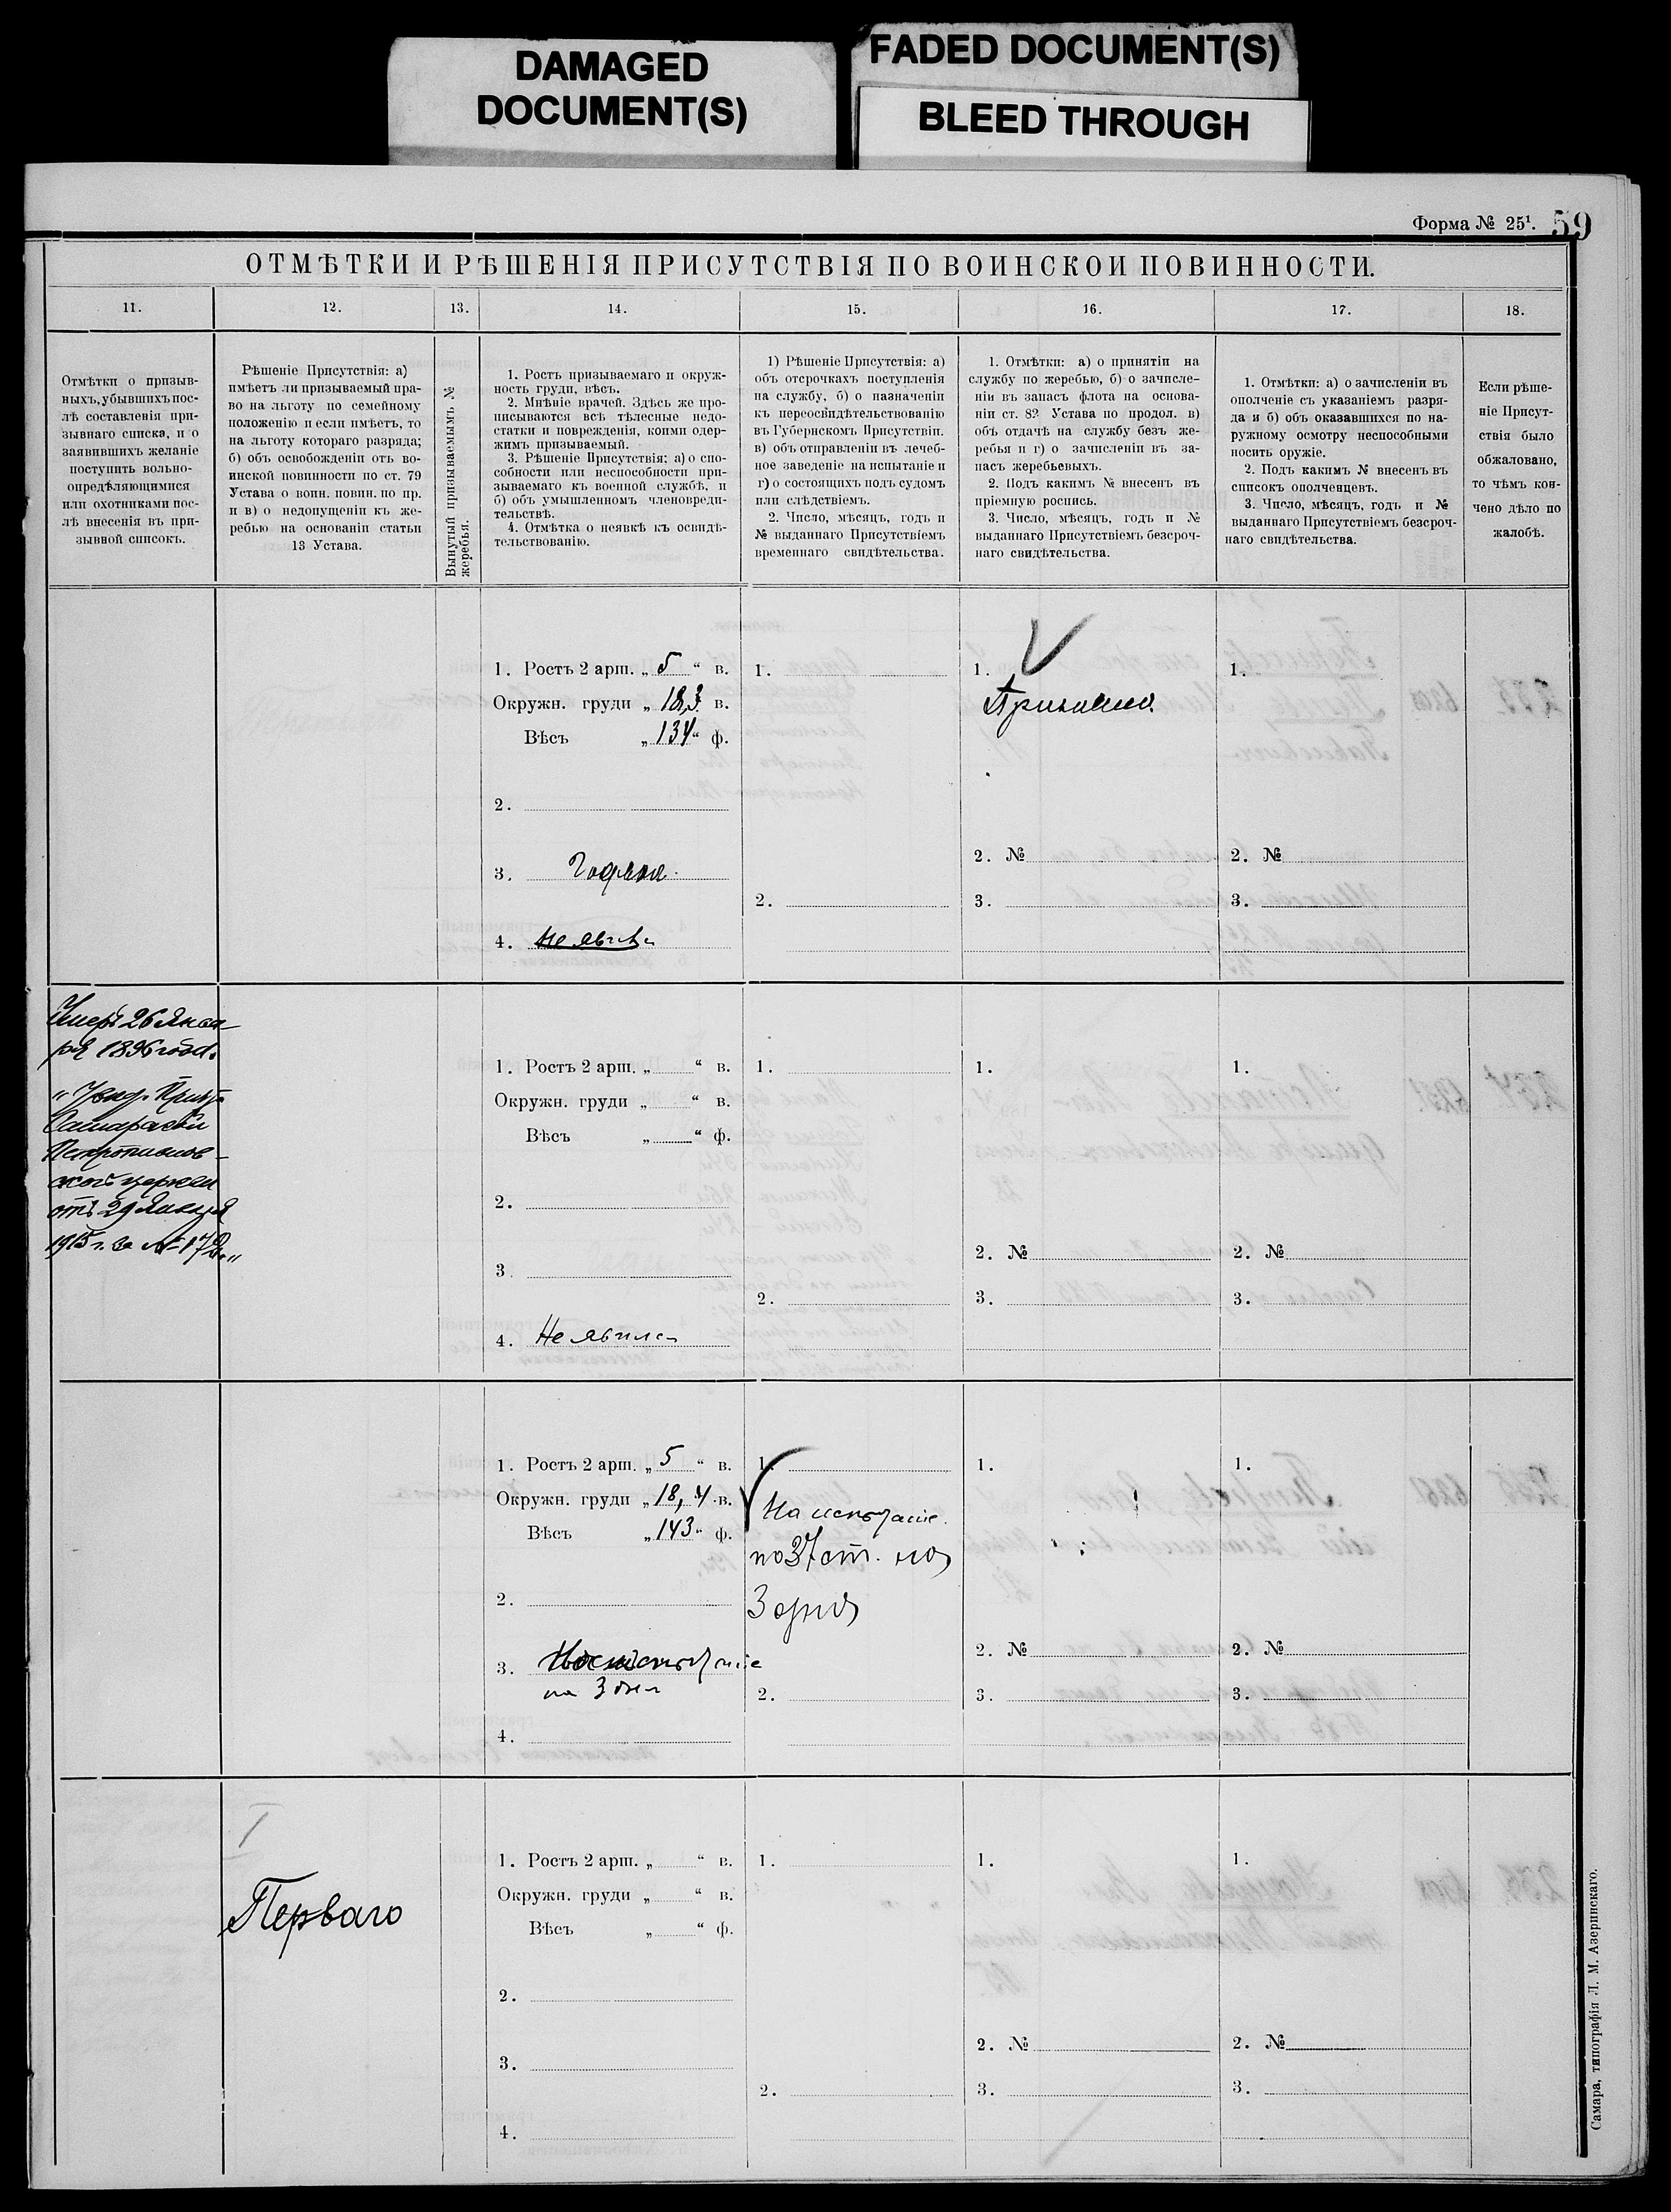 DAMAGED
DOCUMENT(S)
FADED DOCUMENT(S)
BLEED THROUGH
Форма № 25¹. 59
ОТМѢТКИ И РѢШЕНІЯ ПРИСУТСТВІЯ ПО ВОИНСКОИ ПОВИННОСТИ.
11.
12.
13.
14.
15.
16.
17.
18.
Отмѣтки о призыв-
ныхъ, убывшихъ пос-
лѣ составленія при-
зывнаго списка, и о
заявившихъ желаніе
поступить вольно-
опредѣляющимися
или охотниками пос-
лѣ внесенія въ при-
зывной списокъ.
Рѣшеніе Присутствія: а)
имѣетъ ли призываемый пра-
во на льготу по семейному
положенію и если имѣетъ, то
на льготу котораго разряда;
б) объ освобожденіи отъ во-
инской повинности по ст. 79
Устава о воин. повин. по пр.
и в) о недопущеніи къ же-
ребью на основаніи статьи
13 Устава.
Вынутый призываемымъ №
жеребья.
1. Ростъ призываемаго и окруж-
ность груди, вѣсъ.
2. Мнѣніе врачей. Здѣсь же про-
писываются всѣ тѣлесные недо-
статки и поврежденія, коими одер-
жимъ призываемый.
3. Рѣшеніе Присутствія; а) о спо-
собности или неспособности при-
зываемаго къ военной службѣ, и
б) объ умышленномъ членовреди-
тельствѣ.
4. Отмѣтка о неявкѣ къ освидѣ-
тельствованію.
1) Рѣшеніе Присутствія: а)
объ отсрочкахъ поступленія
на службу, б) о назначеніи
къ переосвидѣтельствованію
въ Губернскомъ Присутствіи.
в) объ отправленіи въ лечеб-
ное заведеніе на испытаніе и
г) о состоящихъ подъ судомъ
или слѣдствіемъ.
2. Число, мѣсяцъ, годъ и
№ выданнаго Присутствіемъ
временнаго свидѣтельства.
1. Отмѣтки: а) о принятіи на
службу по жеребью, б) о зачисле-
ніи въ запасъ флота на основа-
ніи ст. 82 Устава по продол. в)
объ отдачѣ на службу безъ же-
ребья и г) о зачисленіи въ за-
пасъ жеребьевыхъ.
2. Подъ какимъ № внесенъ въ
пріемную роспись.
3. Число, мѣсяцъ, годъ и №
выданнаго Присутствіемъ безсроч-
наго свидѣтельства.
1. Отмѣтки: а) о зачисленіи въ
ополченіе съ указаніемъ разря-
да и б) объ оказавшихся по на-
ружному осмотру неспособными
носить оружіе.
2. Подъ какимъ № внесенъ въ
списокъ ополченцевъ.
3. Число, мѣсяцъ, годъ и №
выданнаго Присутствіемъ безсроч-
наго свидѣтельства.
Если рѣше-
ніе Присут-
ствія было
обжаловано,
то чѣмъ кон-
чено дѣло по
жалобѣ.
1. Ростъ 2 арш. „ 5 “ в.
Окружн. груди „ 18,3 в.
Вѣсъ „ 134 “ ф.
2.
3. Годенъ.
4. Не явился
1.
2.
1.
Принятъ.
2. №
3.
1.
2. №
3.
Умеръ 26 Янва-
ря 1896 года.
Самарской
Петропавлов-
ской церкви
отъ 29 Января
1915 г. за №
1. Ростъ 2 арш. „ “ в.
Окружн. груди „ “ в.
Вѣсъ „ “ ф.
2.
3.
4. Не явился
1.
2.
1.
2. №
3.
1.
2. №
3.
1. Ростъ 2 арш. „ 5 “ в.
Окружн. груди „ 18,4 в.
Вѣсъ „ 143 “ ф.
2.
3. На испытаніе
на 3 дня
4.
1.
На испытаніе
по 37 ст. на
3 дня
2.
1.
2. №
3.
1.
2. №
3.
I
Перваго
1. Ростъ 2 арш. „ “ в.
Окружн. груди „ “ в.
Вѣсъ „ “ ф.
2.
3.
4.
1.
2.
1.
2. №
3.
1.
2. №
3.
Самара, типографія Л. М. Азеринскаго.